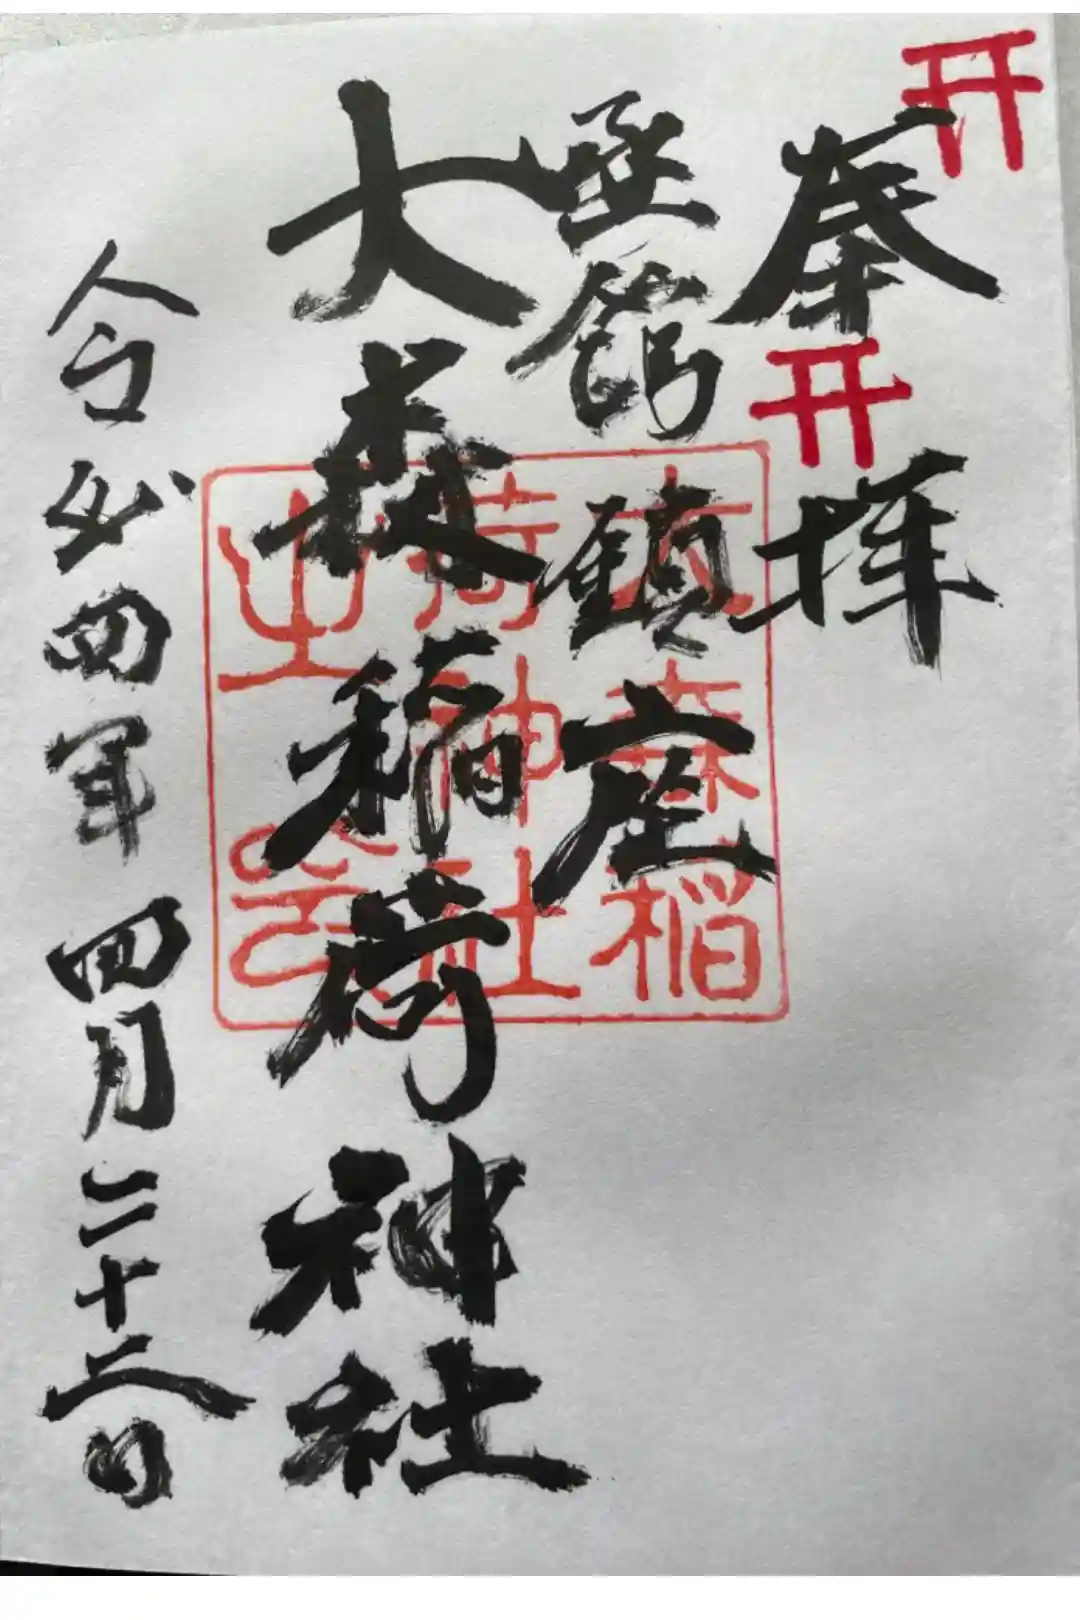 奉拝
函館鎮座
大森稲荷神社
令和四年四月二十二日
大森稲
荷神社
之